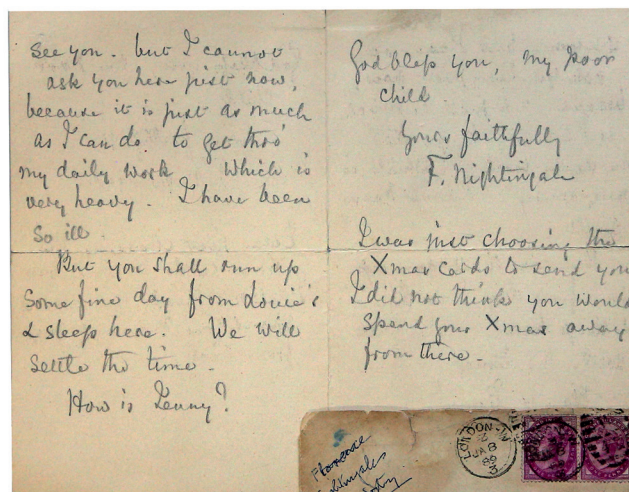 see you. but I cannot
ask you here just now,
because it is just as much
as I can do. to get thro'
my daily work which is
very heavy. I have been
so ill
But you shall run up
Some fine day from Louie's
& sleep here. We will
settle the time.
How is Lenny?
God bless you, my poor
child
Yours faithfully
F. Nightingale
I was just choosing the
Xmas cards to send you
I did not think you would
spend your Xmas away
from there.
Florence
LONDON W
JA 8